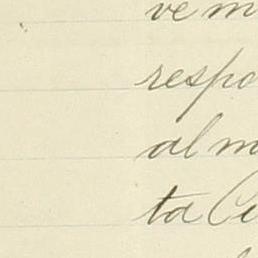 ve m
respo
al m
ta Ci